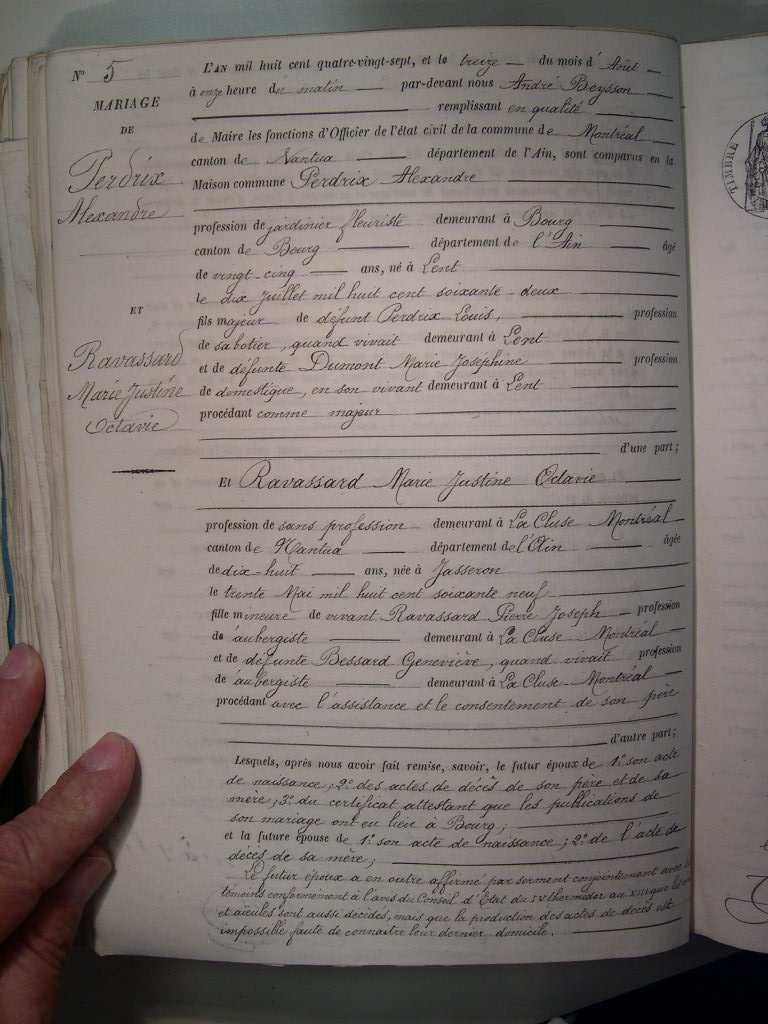 N° 5
MARIAGE
DE
Perdrix
Alexandre
ET
Ravassard
Marie Justine
Octavie
L'AN mil huit cent quatre-vingt-sept, et le treize du mois d'Août
à onze heure du matin par-devant nous André Beysson
remplissant en qualité
de Maire les fonctions d'Officier de l'état civil de la commune de Montréal
canton de Nantua département de l'Ain, sont comparus en la
Maison commune Perdrix Alexandre
profession de jardinier fleuriste demeurant à Bourg
canton de Bourg département de l'Ain âgé
de vingt-cinq ans, né à Lent
le dix Juillet mil huit cent soixante-deux
fils majeur de défunt Perdrix Louis, profession
de sabotier, quand vivait demeurant à Lent
et de défunte Dumont Marie Joséphine profession
de domestique, en son vivant demeurant à Lent
procédant comme majeur
d'une part;
Et Ravassard Marie Justine Octavie
profession de sans profession demeurant à La Cluse Montréal
canton de Nantua département de l'Ain âgée
de dix-huit ans, née à Jasseron
le trente Mai mil huit cent soixante neuf
fille mineure de vivant Ravassard Pierre Joseph profession
de aubergiste demeurant à La Cluse Montréal
et de défunte Bessard Geneviève, quand vivait profession
de aubergiste demeurant à La Cluse-Montréal
procédant avec l'assistance et le consentement de son père
d'autre part;
Lesquels, après nous avoir fait remise, savoir, le futur époux de 1° son acte
de naissance; 2° des actes de décès de son père et de sa
mère; 3° du certificat attestant que les publications de
son mariage ont eu lieu à Bourg;
et la future épouse de 1° son acte de naissance; 2° de l'acte de
décès de sa mère;
Le futur époux a en outre affirmé par serment conjointement avec les
témoins conformément à l'avis du Conseil d'Etat du IV thermidor an XIII que les
et aïeules sont aussi décédés, mais que la production des actes de décès est
impossible faute de connaître leur dernier domicile.
TIMBRE